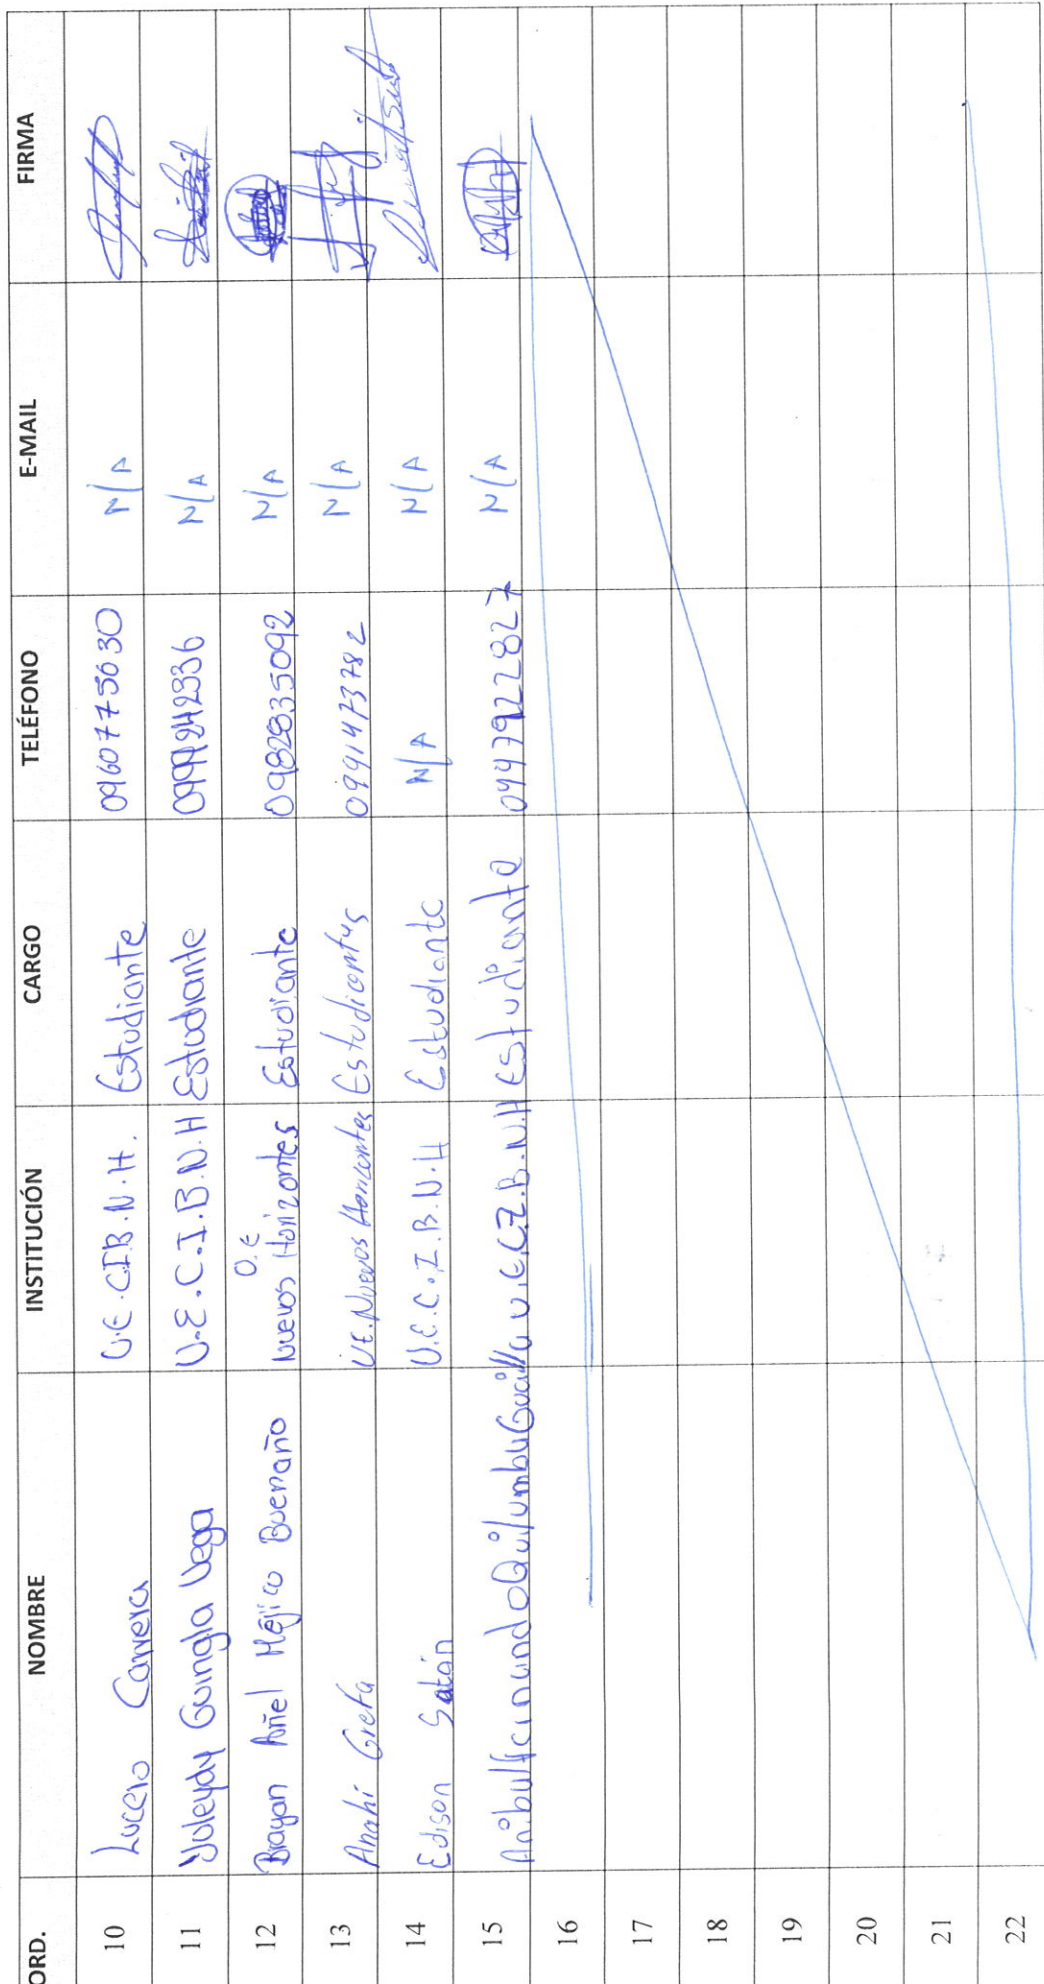 ORD. NOMBRE INSTITUCIÓN CARGO TELÉFONO E-MAIL FIRMA
10 Lucero Carrera U.E.C.I.B.N.H. Estudiante 0960775630 N/A
11 Yuleydy Guingla Vega U.E.C.I.B.N.H Estudiante N/A
12 Brayan Ariel Méjico Buenaño U.E Nuevos Horizontes Estudiante 0982835092 N/A
13 Anahi Grefa U.E. Nuevos Horizontes Estudiantes 0991473782 N/A
14 Edison Satán U.E.C.I.B.N.H Estudiante N/A N/A
15 U.E.C.I.B.N.H Estudiante N/A
16
17
18
19
20
21
22